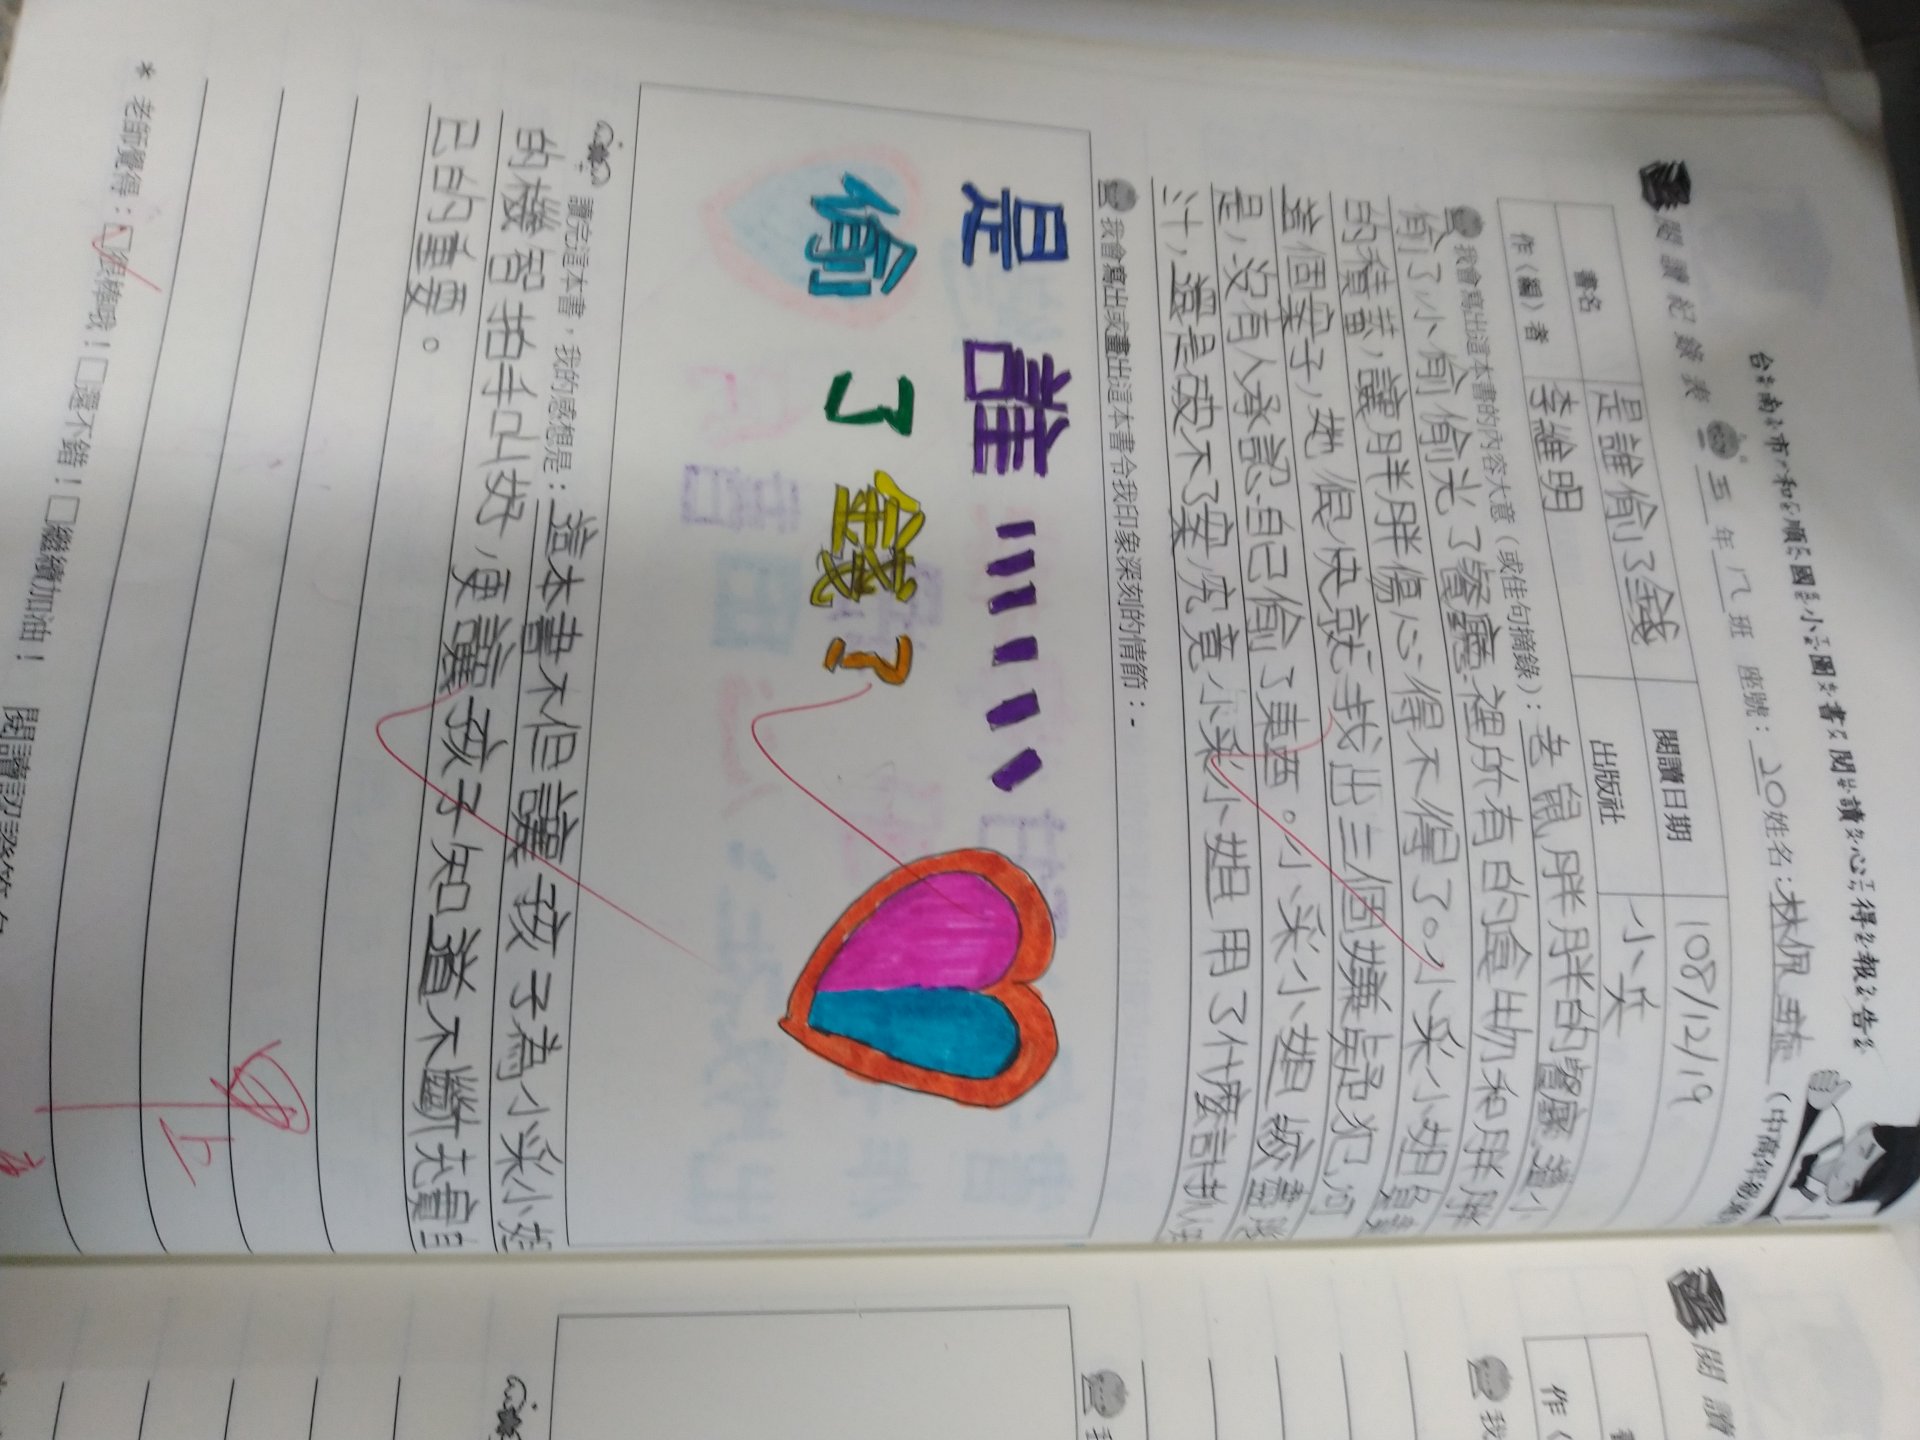 台南市和順國小圖書閱讀心得報告
閱讀紀錄表 五年八班 座號：20 姓名：林侃
書名 是誰偷了錢 閱讀日期 108/12/19
作（編）者 李維明 出版社 小兵
我會寫出這本書的內容大意（或佳句摘錄）：老鼠胖胖的
偷了小偷偷光了 裡所有的食物和胖胖
的積蓄，讓胖胖傷心得不得了。小采小姐
這個案子，她很快就找出三個嫌疑犯，可
是，沒有人承認自己偷了東西。小采小姐
汁，還是破不了案，究竟小采小姐用了什麼計
我會寫出或畫出這本書令我印象深刻的情節：
是誰
偷了錢了
讀完這本書，我的感想是：這本書不但讓孩子為小采小姐
的機智拍手叫好，更讓孩子知道不斷充實自
己的重要。
* 老師覺得：□很棒哦！□還不錯！□繼續加油！
閱讀
作（
我